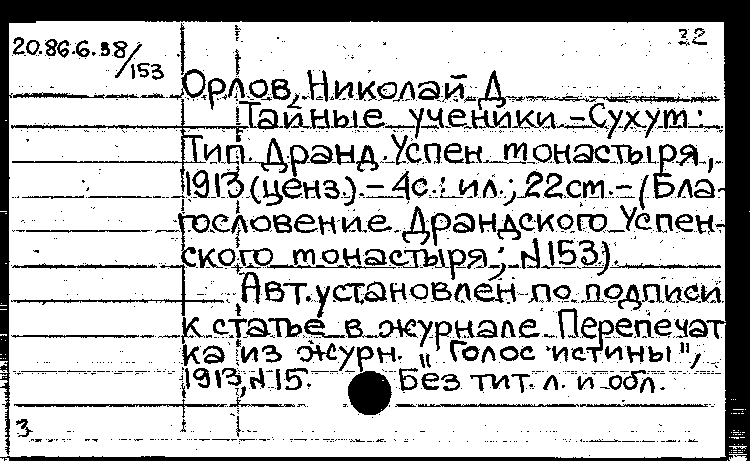 32
20.86.6.38/153
Орлов, Николай Д
Тайные ученики - Сухум:
Тип. Дранд. Успен. монастыря,
1913 (ценз.). - 4с.: ил.; 22см. - (Бла-
гословение Драндского Успен-
ского монастыря; №153).
Авт. установлен по подписи
к статье в журнале Перепечат
ка из журн. "Голос истины",
1913, №15. Без тит. л. и обл.
3